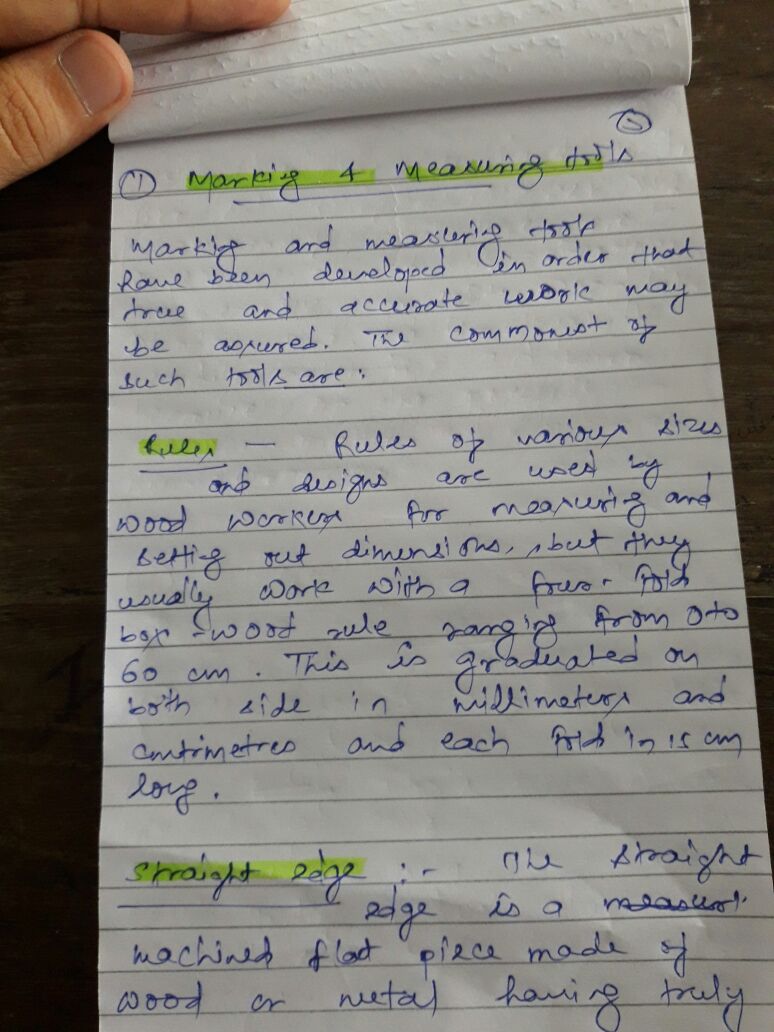 5
(1) Marking & Measuring tools
Marking and measuring tools
have been developed in order that
true and accurate work may
be assured. The commonest of
such tools are:
Rules — Rules of various sizes
and designs are used by
wood workers for measuring and
setting out dimensions, but they
usually work with a four-fold
box-wood rule ranging from 0 to
60 cm. This is graduated on
both side in millimeters and
centimetres and each fold in 15 cm
long.
Straight edge :- The straight
edge is a
machined flat piece made of
wood or metal having truly